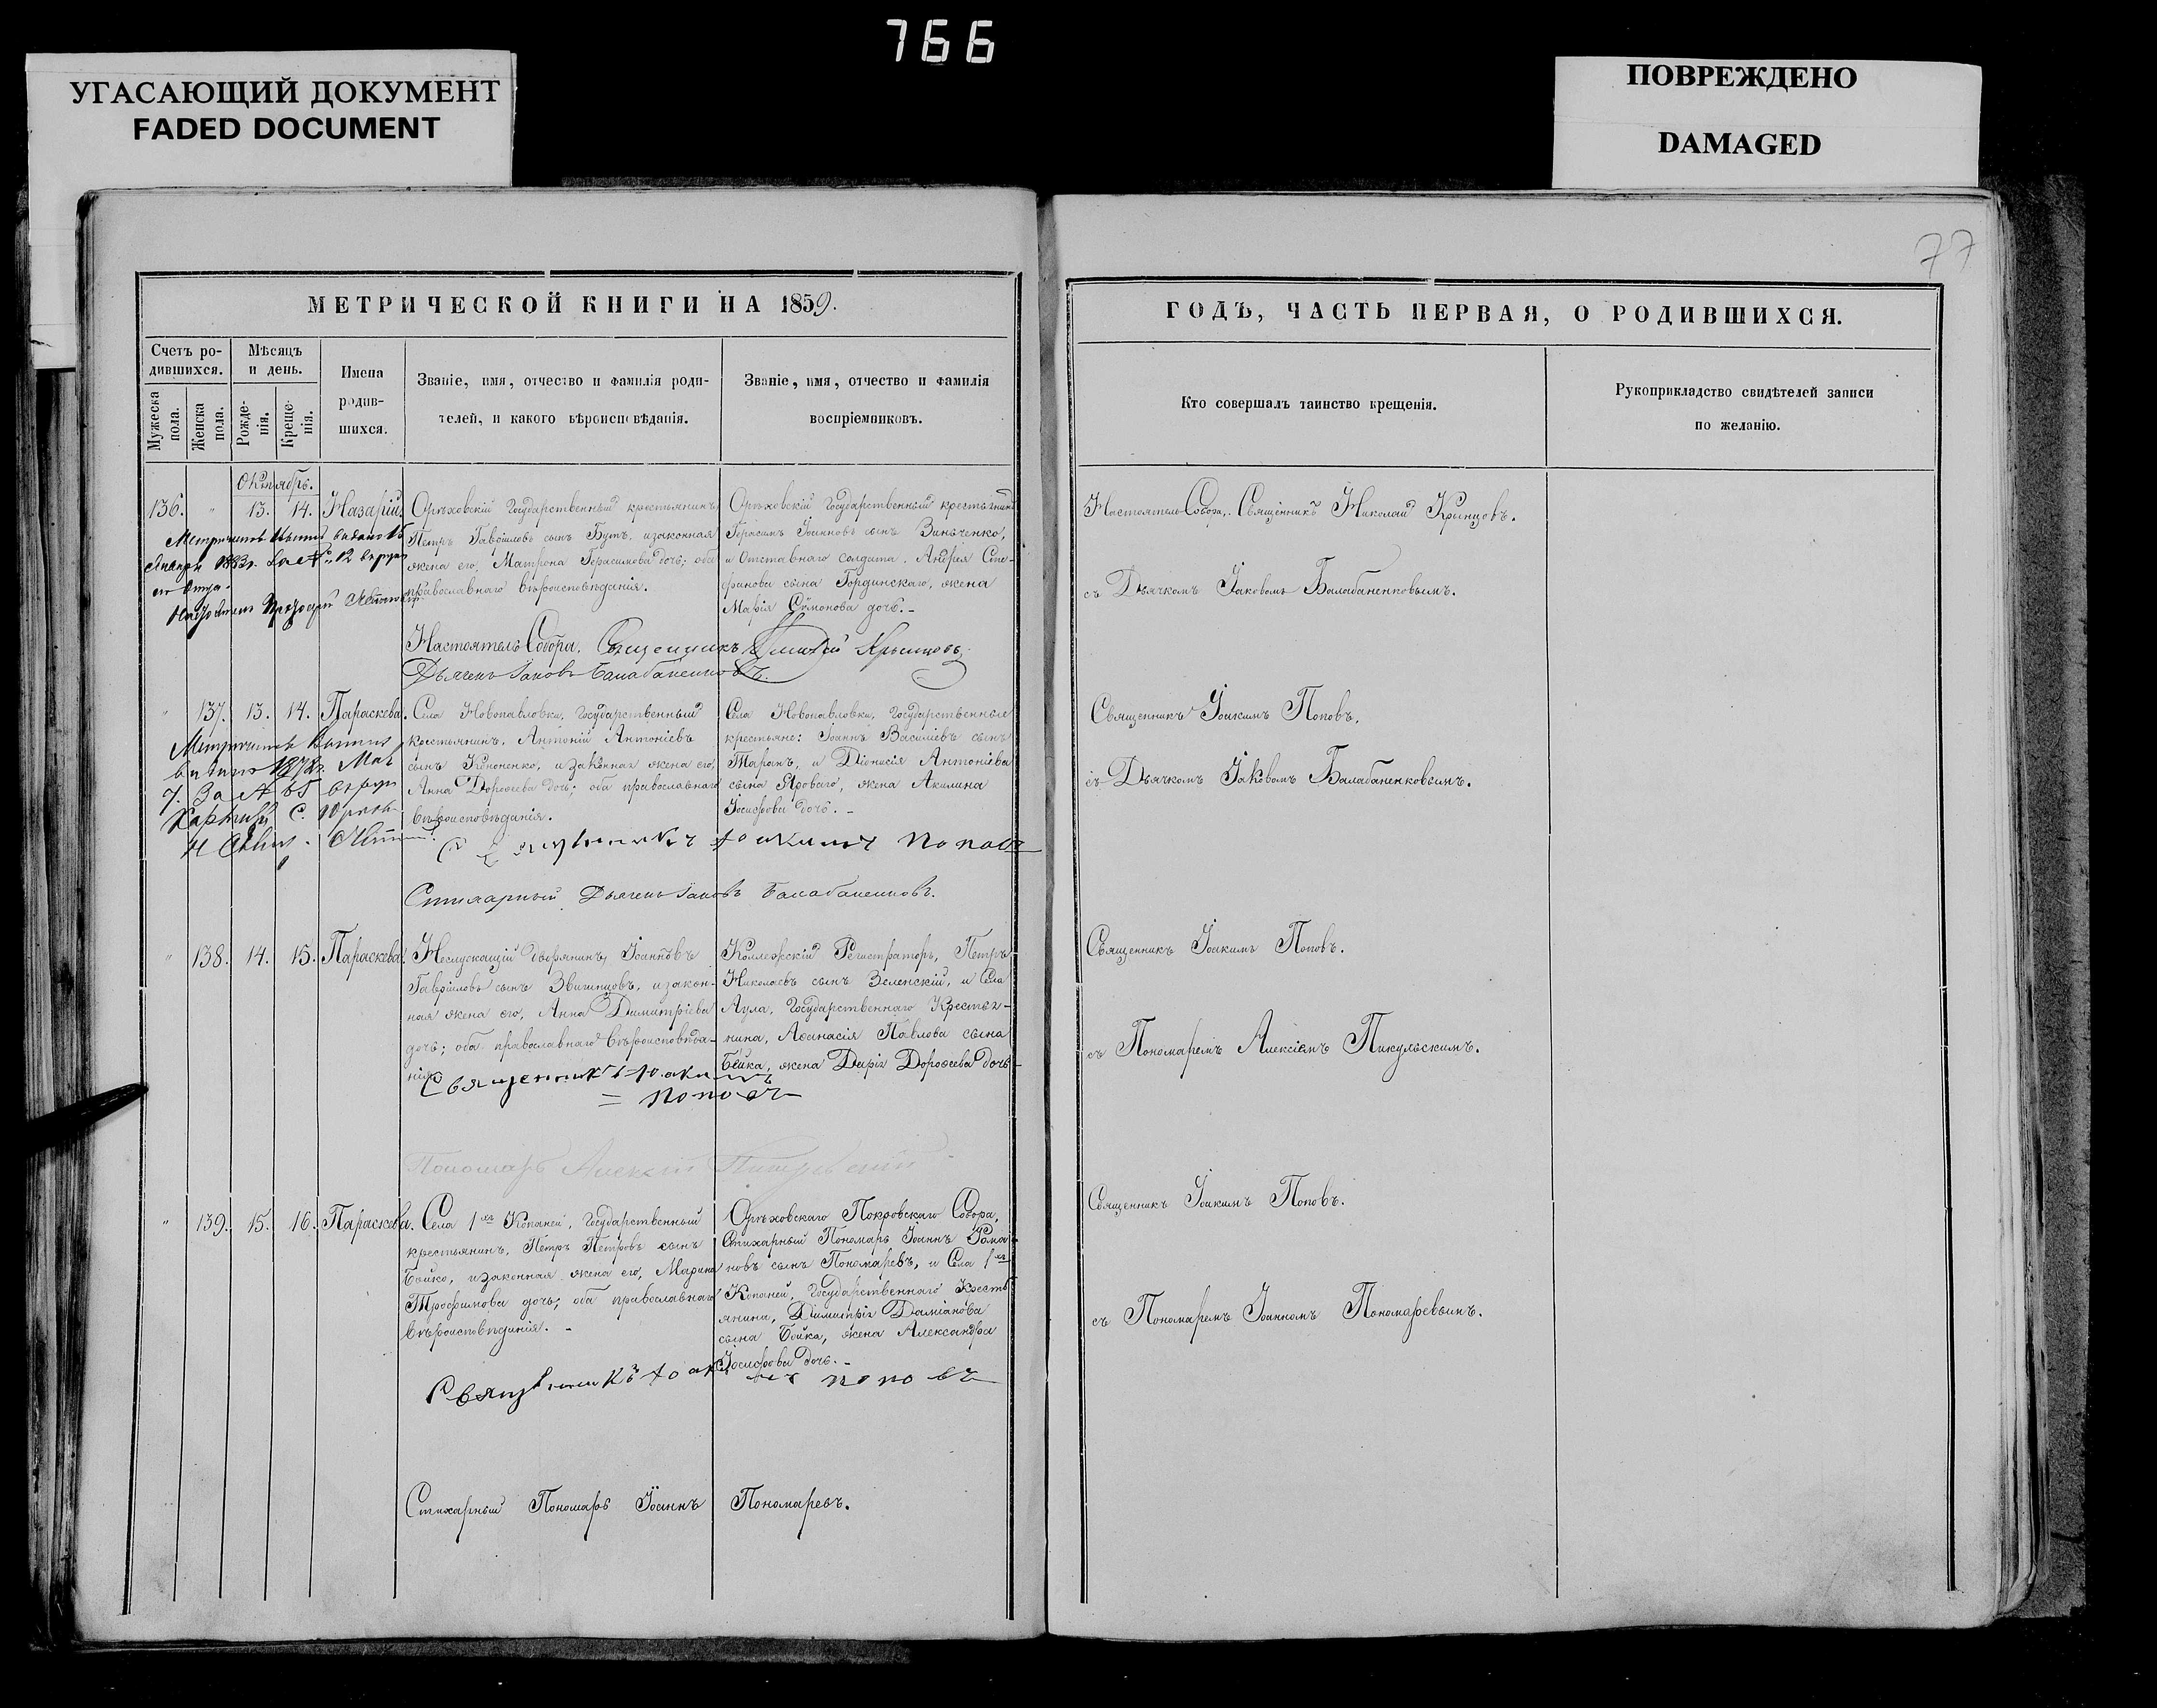 766
УГАСАЮЩИЙ ДОКУМЕНТ
FADED DOCUMENT
ПОВРЕЖДЕНО
DAMAGED
77
МЕТРИЧЕСКОЙ КНИГИ НА 1859.
Счетъ ро-
дившихся.
Мужеска
пола.
Женска
пола.
Мѣсяцъ
и день.
Рожде-
нія.
Креще-
нія.
Имена
родив-
шихся.
Званіе, имя, отчество и фамилія роди-
телей, и какого вѣроисповѣданія.
Званіе, имя, отчество и фамилія
воспріемниковъ.
ГОДЪ, ЧАСТЬ ПЕРВАЯ, О РОДИВШИХСЯ.
Кто совершалъ таинство крещенія.
Рукоприкладство свидѣтелей записи
по желанію.
Октябрь.
136. " 13. 14. Назарій
Орѣховскій Государственный крестьянинъ
Петръ Гавріиловъ сынъ Бутъ, и законная
жена его, Матрона Герасимова дочь; оба
православнаго вѣроисповѣданія.
Орѣховскій Государственный крестьянинъ
Герасимъ Іоанновъ сынъ Зинъченко,
и Отставнаго солдата, Андрея Сте-
фанова сына Гординскаго, жена
Марія Сѵмонова дочь.-
Настоятель Собора, Священникъ Николай Крынцовъ.
съ Дьячкомъ Іаковомъ Балабаненковымъ.
Настоятель Собора, Священникъ Николай Крынцовъ
Дьячекъ Іаковъ Балабаненковъ.
" 137. 13. 14. Параскева.
Села Новопавловки, Государственный
крестьянинъ, Антоній Антоніевъ
сынъ Кононенко, и законная жена его,
Анна Дороѳеева дочь; оба православнаго
вѣроисповѣданія.
Села Новопавловки, Государственные
крестьяне: Іоаннъ Василіевъ сынъ
Таранъ, и Діонисія Антоніева
сына Яроваго, жена Акилина
Іосифова дочь.-
Священникъ Іоакимъ Поповъ.
съ Дьячкомъ Іаковомъ Балабаненковымъ.
Священникъ Іоакимъ Поповъ
Стихарный Дьячекъ Іаковъ Балабаненковъ.
" 138. 14. 15. Параскева.
Неслужащій дворянинъ, Іоаннъ
Гавріиловъ сынъ Звягинцовъ, и закон-
ная жена его, Анна Димитріева
дочь; оба православнаго вѣроисповѣда-
нія.
Коллежскій Регистраторъ, Петръ
Николаевъ сынъ Зеленскій, и Села
Аула, Государственнаго Крестья-
нина, Аѳанасія Павлова сына
Бойка, жена Дарія Дороѳеева дочь
Священникъ Іоакимъ Поповъ.
съ Пономаремъ Алексіемъ Пикульскимъ.
Священникъ Іоакимъ
= Поповъ
Пономарь Алексій Пикульскій
" 139. 15. 16. Параскева.
Села 1хъ Копаней, Государственный
крестьянинъ, Петръ Петровъ сынъ
Бойко, и законная жена его, Марина
Трофимова дочь; оба православнаго
вѣроисповѣданія.-
Орѣховскаго Покровскаго Собора,
Стихарный Пономарь Іоаннъ Рома-
новъ сынъ Пономаревъ, и Села 1хъ
Копаней, Государственнаго Кресть-
янина, Димитрія Даміанова
сына Бойка, жена Александра
Іосифова дочь.-
Священникъ Іоакимъ Поповъ.
съ Пономаремъ Іоанномъ Пономаревымъ.
Священникъ Іоакимъ Поповъ
Стихарный Пономарь Іоаннъ Пономаревъ.